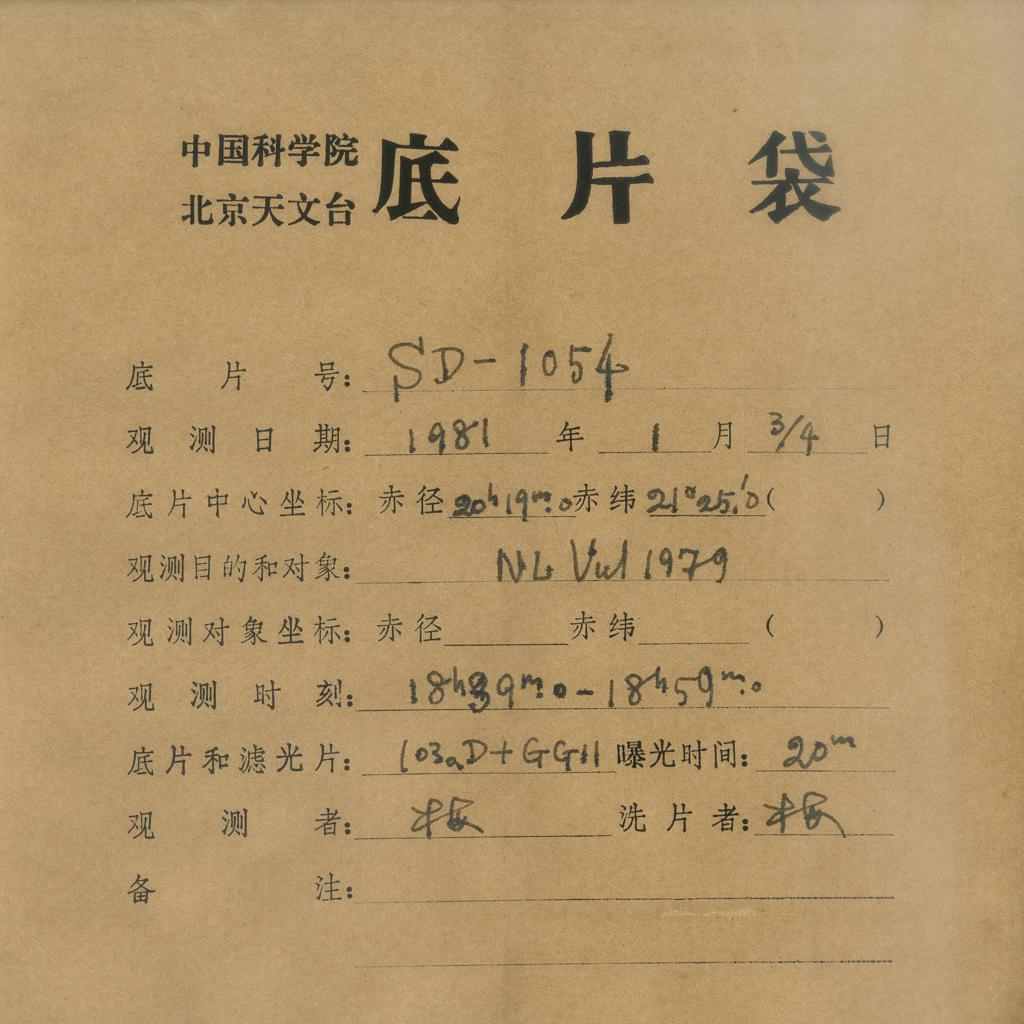 中国科学院
北京天文台 底片袋
底片号: SD-1054
观测日期: 1981 年 1 月 3/4 日
底片中心坐标: 赤径 20ʰ19ᵐ.0 赤纬 21°25.′0 ( )
观测目的和对象: NL Vul 1979
观测对象坐标: 赤径 赤纬 ( )
观测时刻: 18ʰ39ᵐ.0-18ʰ59ᵐ.0
底片和滤光片: 103aD+GG11 曝光时间: 20ᵐ
观测者: 梅 洗片者: 梅
备注: